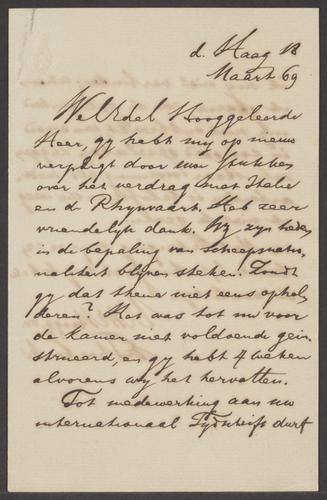 d. Haag 18
Maart 69
WelEdel Hooggeleerde
Heer, gy hebt my op nieuw
verpligt door uw stukken
over het verdrag met Italie
en de Rhynvaart. Heb zeer
vriendelyk dank. Wy zyn heden
in de bepaling van scheepsnatio-
naliteit blyven steken. Zoudt
gy dat thema niet eens ophel-
deren? Het was tot nu voor
de Kamer niet voldoende geïn-
strueerd, en gy hebt 4 weken
alvorens wy het hervatten.
Tot medewerking aan uw
internationaal Tydschrift durf